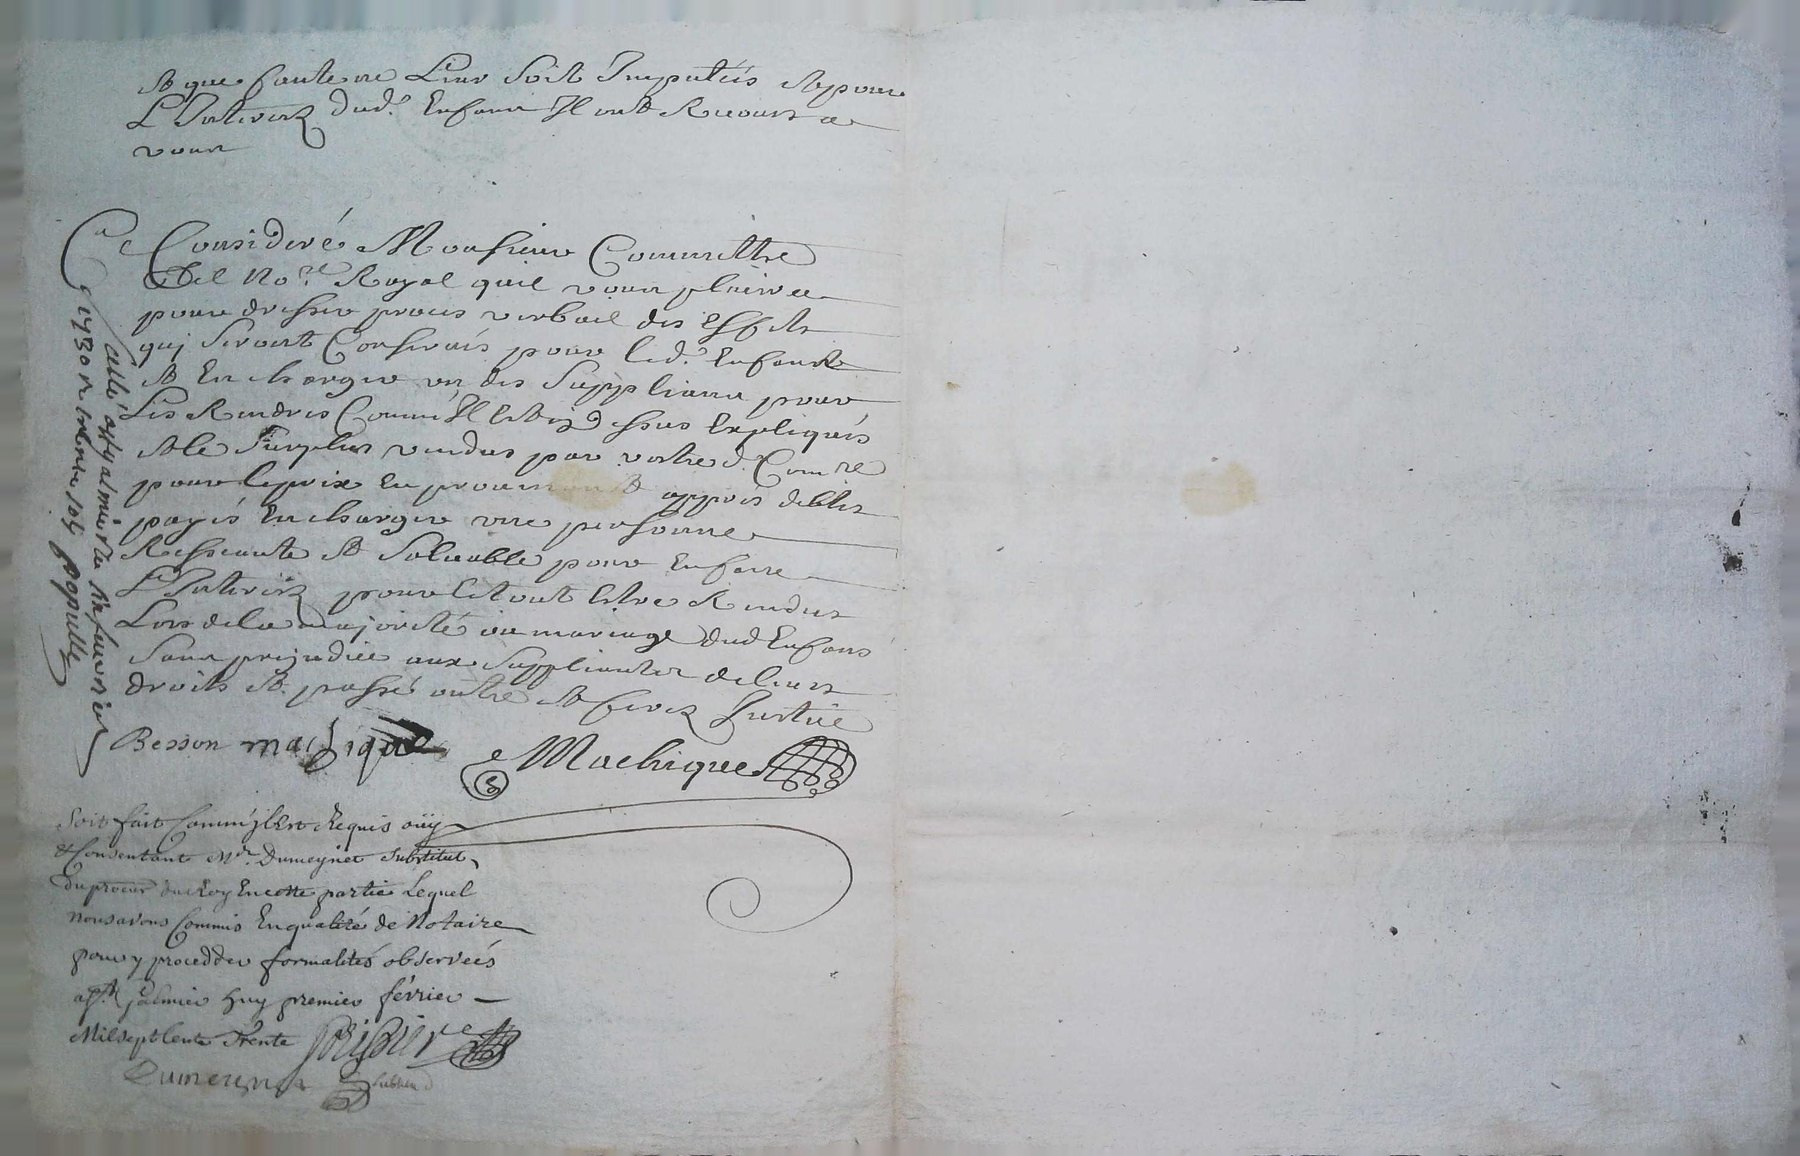 et que faute ne Leur soit Imputéés et pour
L'Interetz dud.t Enfant Il ont Recours a
vous
Ce Consideré Monsieur Commettre
tel No.re Royal quil vous plairra
pour dresser proces verbail des Effets
quj seront Conservés pour led.t Enfant
et En charger un des Supplians pour
Les Rendres Comm'Il est cy dessus Expliqués
et le Surplus vendus par vostre d.t Com.re
pour le prix En provenant et appres debtes
payés En charger une personne
Resseante et Soluable pour En faire
L'Interetz pour le tout Estre Rendus
Lors de la majorité ou mariage dud Enfans
Sans prejudice aux Suppliantes de leurs
droits et passé outre et ferez Justice
Besson machique Machique
Soit fait Comm'jl Est Requis oüy
& Consentant Mr. Dumeynet Substitut
du procur du Roy En cette partie Lequel
nous avons Commis En qualité de Notaire
pour y procedder formalités observéés
a St jalmier huy premier février
Mil sept Cents Trente
Dumeynet
Scellé a St galmier le 1er fevrier
1730 R sols papulle